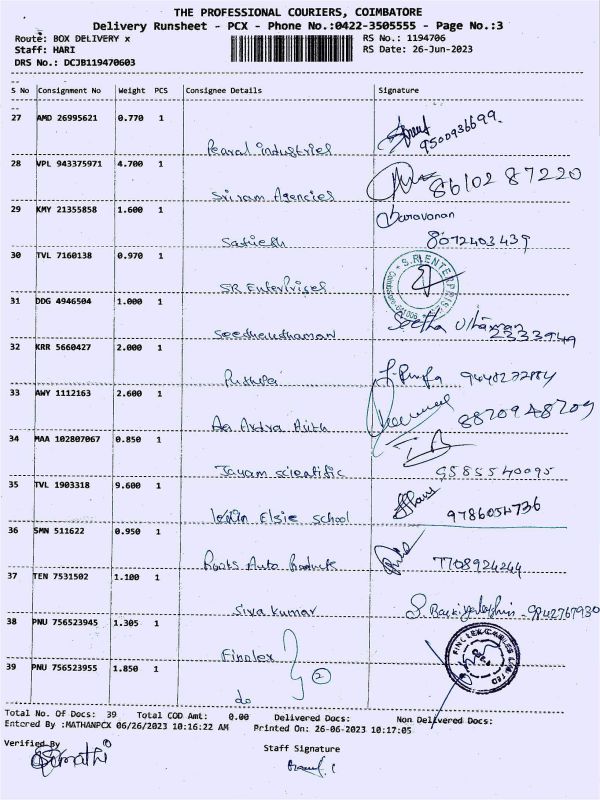 THE PROFESSIONAL COURIERS, COIMBATORE
Delivery Runsheet - PCX - Phone No.:0422-3505555 - Page No.:3
Route: BOX DELIVERY x RS No.: 1194706
Staff: HARI RS Date: 26-Jun-2023
DRS No.: DCJB119470603
S No Consignment No Weight PCS Consignee Details Signature
27 AMD 26995621 0.770 1
Pearal industries 9500936699.
28 VPL 943375971 4.700 1
Sriram Agencies 86102 87220
29 KMY 21355858 1.600 1 Saravanan
Sathish 8072403439
30 TVL 7160138 0.970 1
SR Enterprises S.R. ENTERPRISES
31 DDG 4946504 1.000 1
2333949
32 KRR 5660427 2.000 1
33 AWY 1112163 2.600 1
8870948709
34 MAA 102807067 0.850 1
Jayam scientific 9585540095
35 TVL 1903318 9.600 1
Elsie school 9786054736
36 SMN 511622 0.950 1
Roots Auto Products 7708924244
37 TEN 7531502 1.100 1
Siva kumar 9842767930
38 PNU 756523945 1.305 1
Finolex FINOLEX CABLES LIMITED
39 PNU 756523955 1.850 1 2
do
Total No. Of Docs: 39 Total COD Amt: 0.00 Delivered Docs: Non Delivered Docs:
Entered By :MATHANPCX 06/26/2023 10:16:22 AM Printed On: 26-06-2023 10:17:05
Verified By Staff Signature